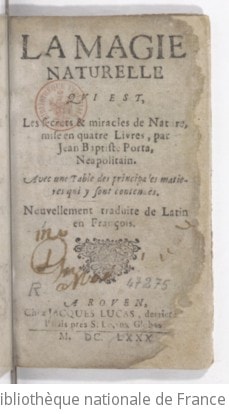 LA MAGIE
NATURELLE
QUI EST,
Les secrets & miracles de Nature,
mise en quatre Livres, par
Jean Baptist. Porta,
Neapolitain.
Avec une Table des principales matie-
res qui y sont contenuës.
Nouvellement traduite de Latin
en François.
R 47275
A ROVEN,
Chez JACQUES LUCAS, derriere
le Palais pres S.
M. DC. LXXX.
bibliothèque nationale de France